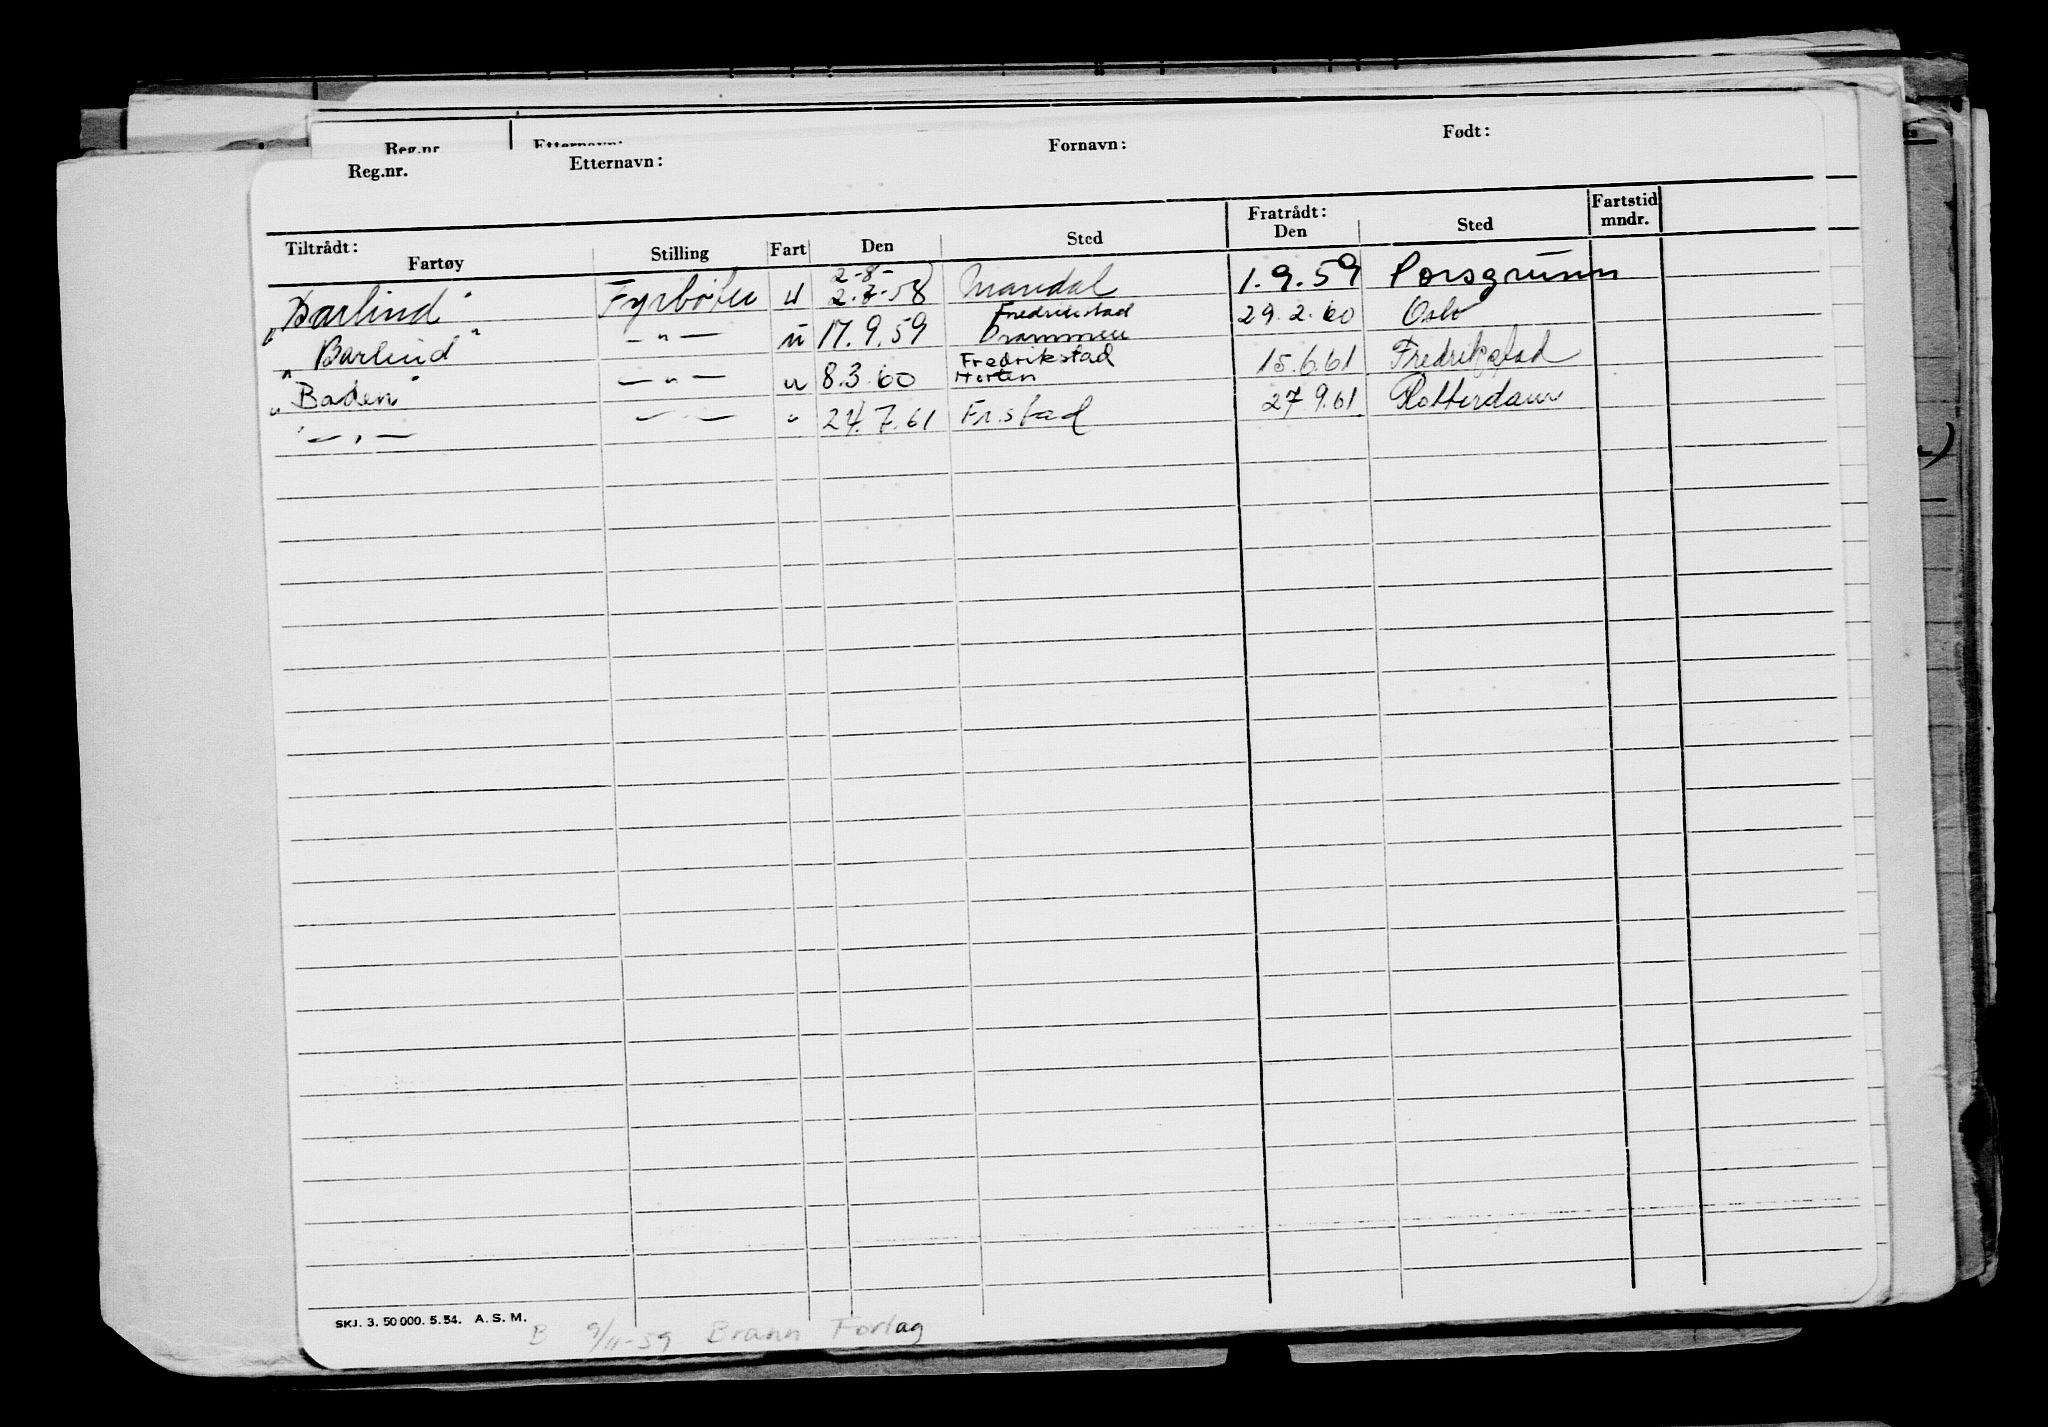 Reg.nr. Etternavn:
Reg.nr. Etternavn: Fornavn: Født:
Tiltrådt: Fratrådt: Fartstid
Fartøy Stilling Fart Den Sted Den Sted mndr.
2-8-
"Barlind" Fyrbøter u 2.7-58 Mandal 1.9.59 Porsgrunn
Fredrikstad
"Barlind" —"— u 17.9.59 Drammen 29.2.60 Oslo
Fredrikstad
"Baden" —"— u 8.3.60 Horten 15.6.61 Fredrikstad
"—"— —"— " 24.7.61 Fr.stad 27.9.61 Rotterdam
SKJ. 3. 50 000. 5. 54. A. S. M.
B 9/11-59 Brann Forlag